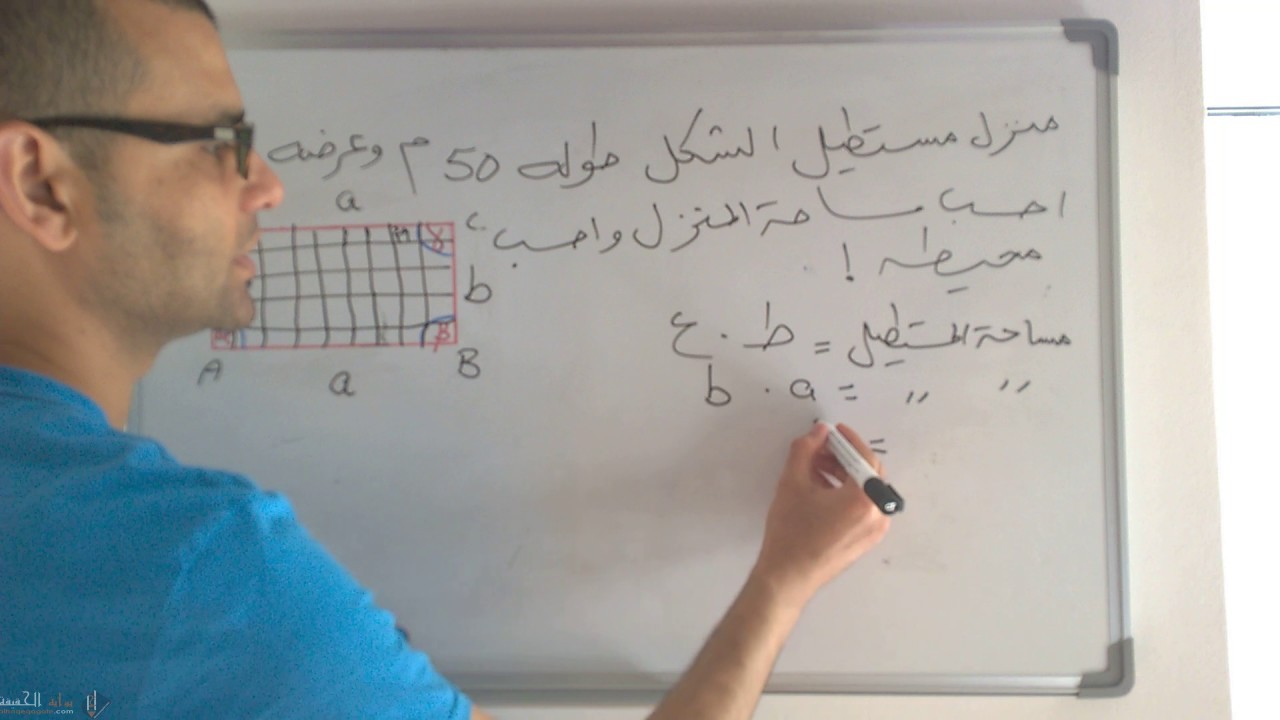 منزل مستطيل الشكل طوله 50 م وعرضه
احسب مساحة المنزل واحسب
محيطه !
مساحة المستطيل = ط . ع
" " = a . b
=
a
b
A
a
B
بوابة الحقيقة